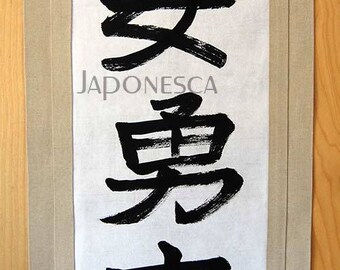 女
JAPONESCA
勇